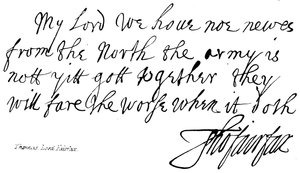 My Lord we haue noe newes
from the North the army is
nott yitt gott together they
will fare the worse when it doth
Tho ffairfax
Thomas Lord Fairfax.